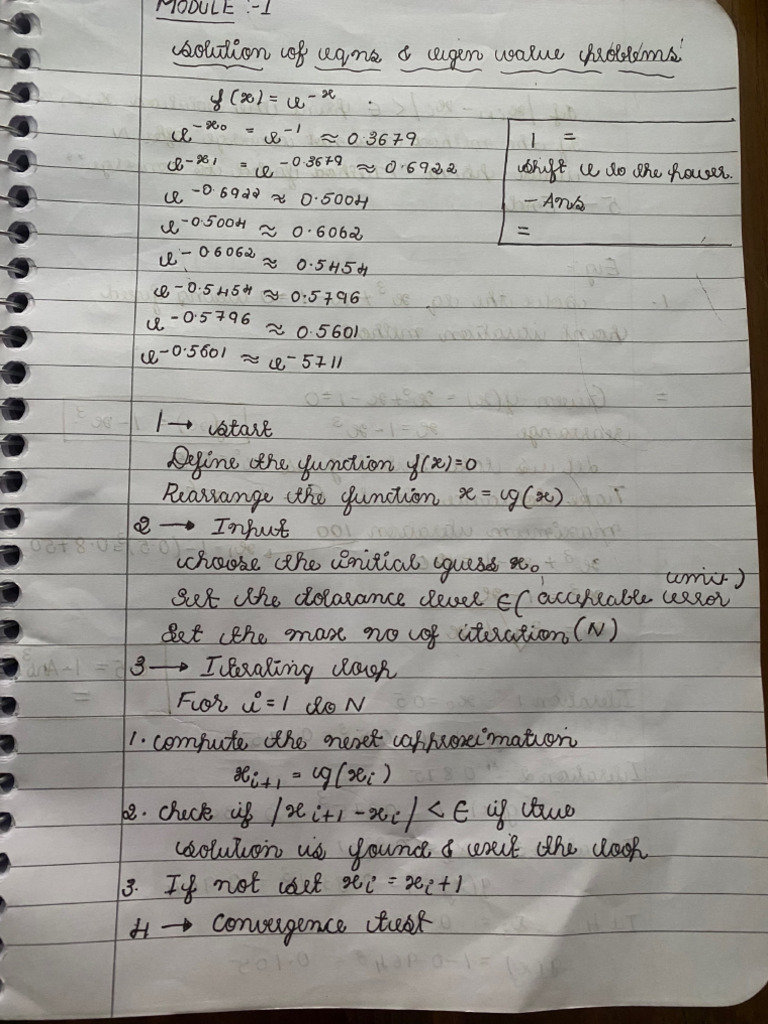 MODULE :-1
solution of eqns & eigen value problems
f(x) = e^-x
e^-x₀ = e^-1 ≈ 0.3679
e^-x₁ = e^-0.3679 ≈ 0.6922
e^-0.6922 ≈ 0.5004
e^-0.5004 ≈ 0.6062
e^-0.6062 ≈ 0.5454
e^-0.5454 ≈ 0.5796
e^-0.5796 ≈ 0.5601
e^-0.5601 ≈ e^-5711
1 =
shift e to the power.
- Ans
=
1 → start
Define the function f(x)=0
Rearrange the function x = g(x)
2 → Input
choose the initial guess x₀
Set the tolarance level ∈ (accpeable error limit)
Set the max no of iteration (N)
3 → Iterating loop
For i = 1 to N
1. compute the next approximation
xᵢ₊₁ = g(xᵢ)
2. check if |xᵢ₊₁ - xᵢ| < ∈ if true
solution is found & exit the loop
3. If not set xᵢ = xᵢ+1
4 → convergence test